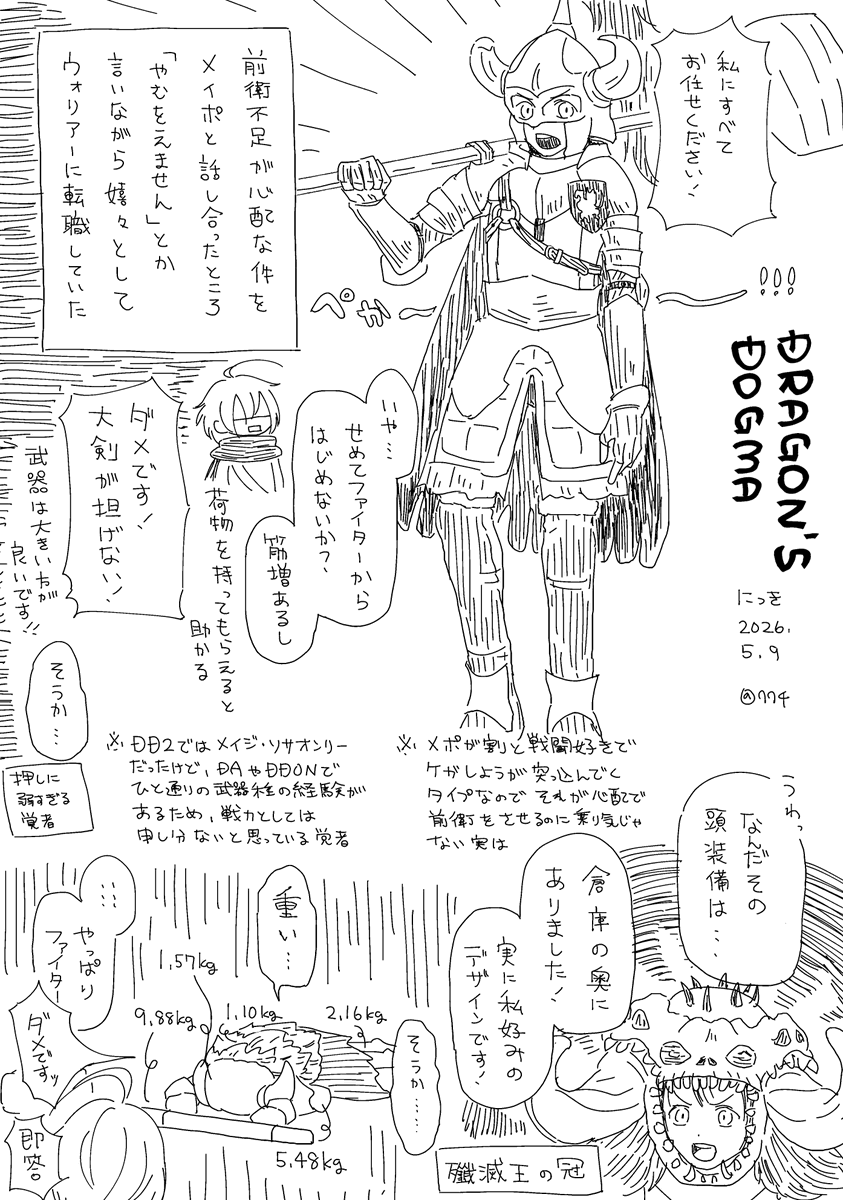 私にすべて
お任せください！
前衛不足が心配な件を
メイポと話し合ったところ
「やむをえません」とか
言いながら嬉々として
ウォリアーに転職していた
ぺかー
!!!
DRAGON'S
DOGMA
にっき
2026.
5.9
@774
いや…
せめてファイターから
はじめないか？
筋増あるし
荷物を持ってもらえると
助かる
ダメです！
大剣が担げない！
武器は大きい方が
良いです!!
そうか…
押しに
弱すぎる
覚者
※メポが割と戦闘好きで
ケガしようが突っ込んでく
タイプなのでそれが心配で
前衛をさせるのに乗り気じゃ
ない実は
※DD2ではメイジ・ソサオンリー
だったけど、DAやDDONで
ひと通りの武器種の経験が
あるため、戦力としては
申し分ないと思っている覚者
うわっ
なんだその
頭装備は…
倉庫の奥に
ありました！
実に私好みの
デザインです！
殲滅王の冠
重い…
1.57kg
9.88kg
1.10kg
2.16kg
5.48kg
そうか……
…
やっぱり
ファイター
ダメですッ
即答